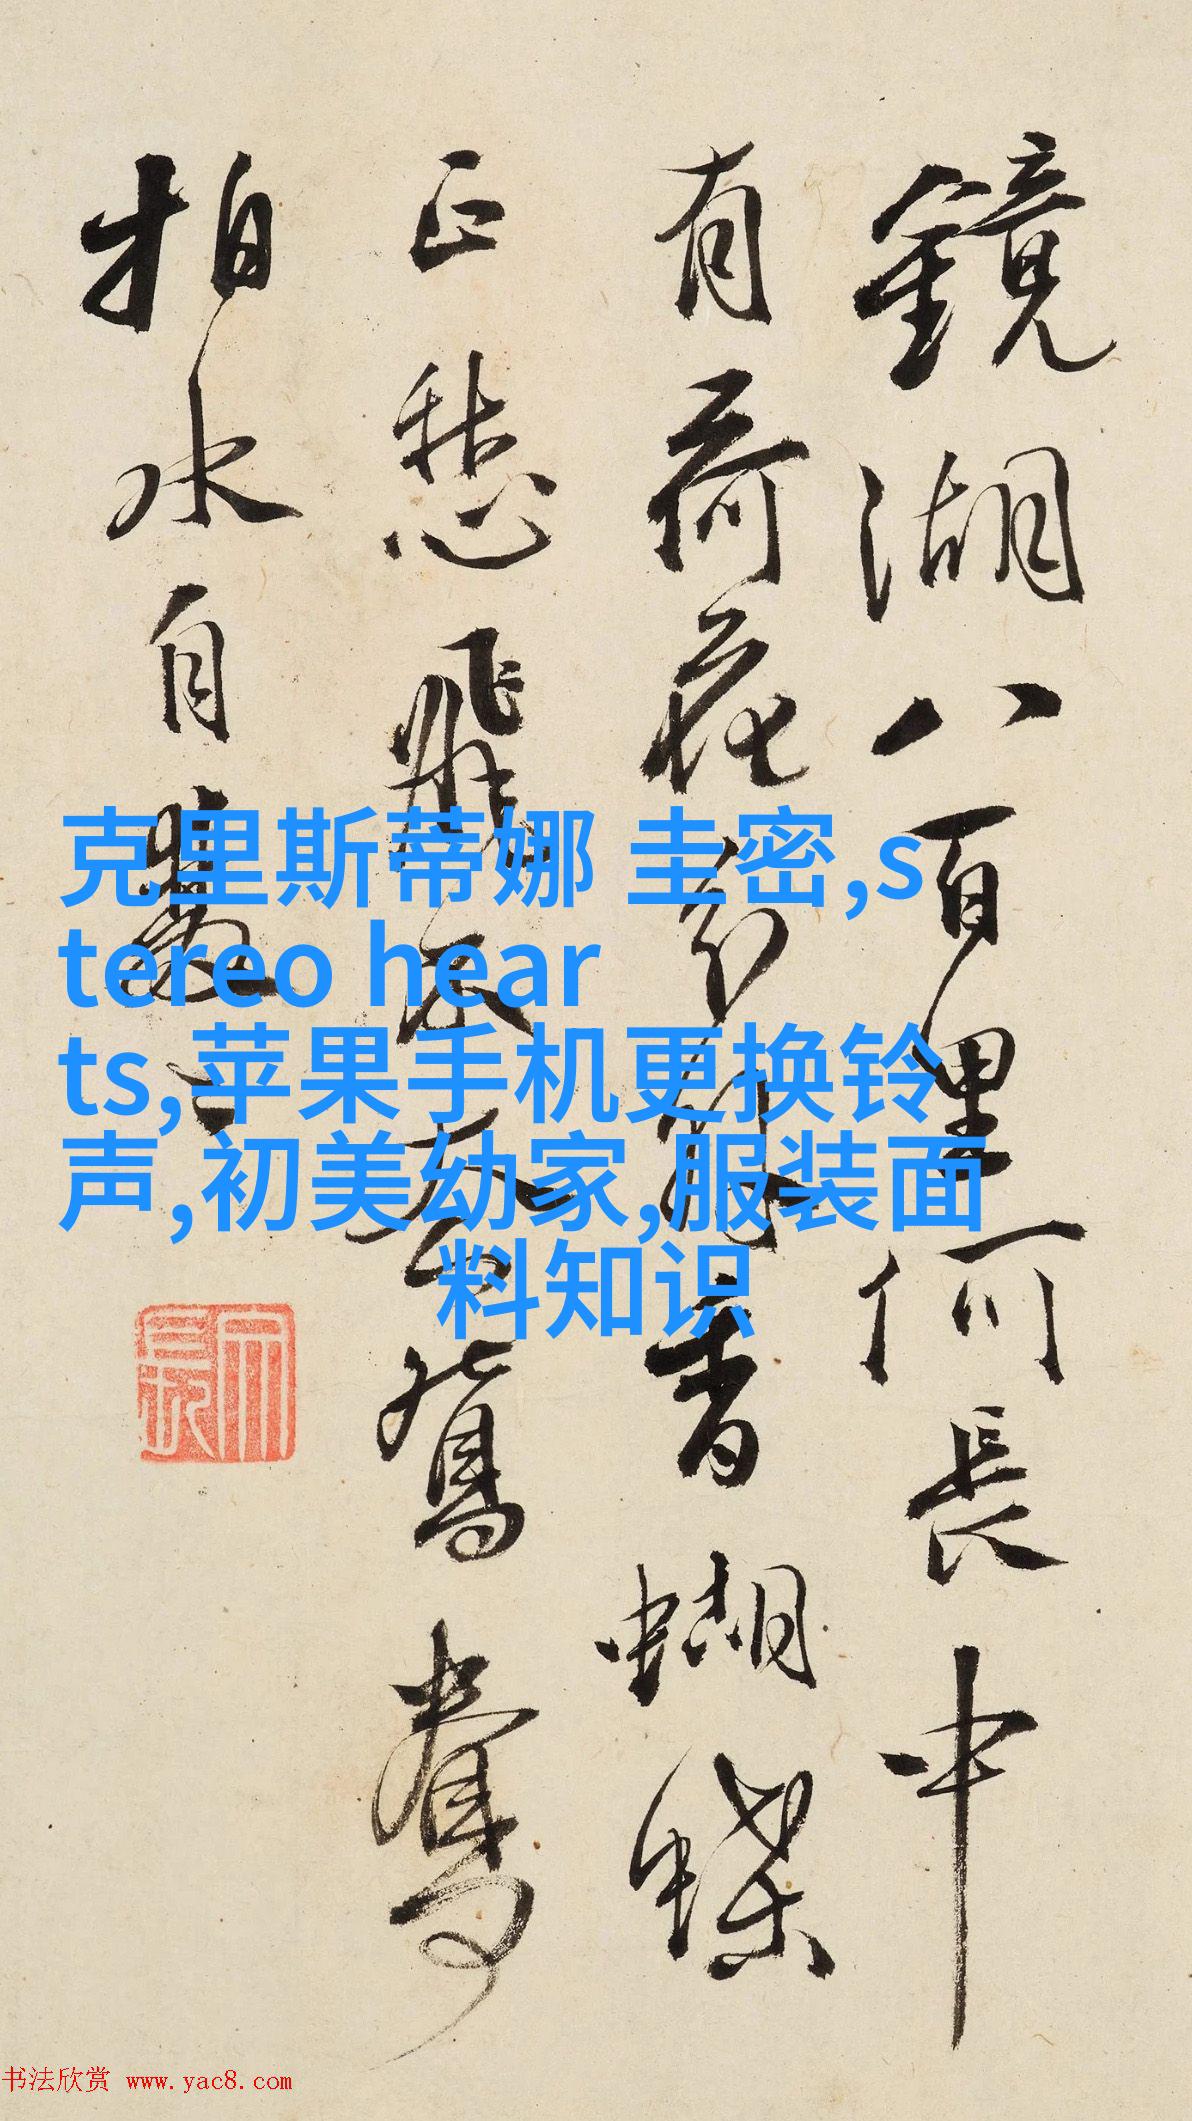 鏡湖八百里何長中
有荷花分香蝴蝶
正愁飛不去鴛鴦
拍水自雙
克里斯蒂娜 圭密,s
tereo hear
ts,苹果手机更换铃
声,初美幼家,服装面
料知识
书法欣赏 www.yac8.com